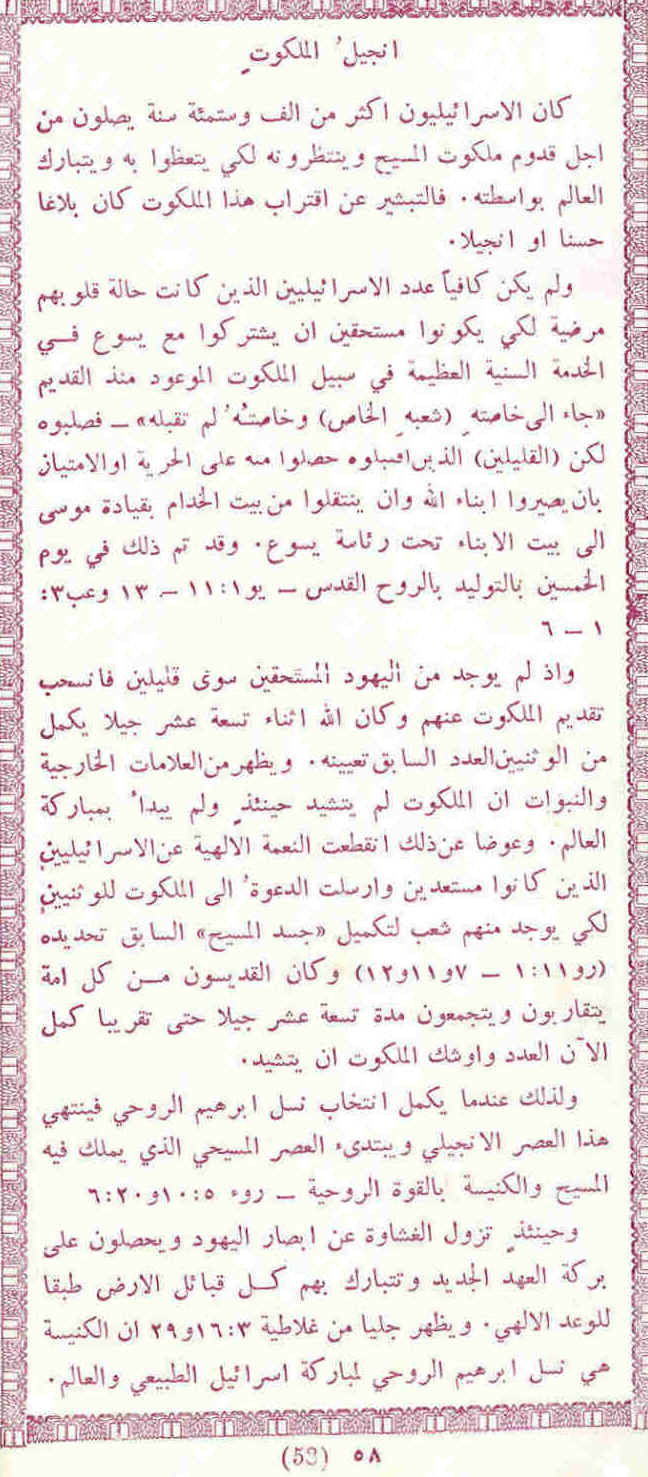 انجيلُ الملكوتِ
كان الاسرائيليون اكثر من الف وستمئة سنة يصلون من
اجل قدوم ملكوت المسيح وينتظرونه لكي يتعظوا به ويتبارك
العالم بواسطته. فالتبشير عن اقتراب هذا الملكوت كان بلاغا
حسنا او انجيلا.
ولم يكن كافياً عدد الاسرائيليين الذين كانت حالة قلوبهم
مرضية لكي يكونوا مستحقين ان يشتركوا مع يسوع فــي
الخدمة السنية العظيمة في سبيل الملكوت الموعود منذ القديم
«جاء الى خاصتهِ (شعبهِ الخاص) وخاصتُهُ لم تقبله» ــ فصلبوه
لكن (القليلين) الذين اقبلوه حصلوا منه على الحرية او الامتياز
بان يصيروا ابناء الله وان ينتقلوا من بيت الخدام بقيادة موسى
الى بيت الابناء تحت رئاسة يسوع. وقد تم ذلك في يوم
الخمسين بالتوليد بالروح القدس ــ يو١:١١ ــ ١٣ وعب٣:
١ ــ ٦
واذ لم يوجد من اليهود المستحقين سوى قليلين فانسحب
تقديم الملكوت عنهم وكان الله اثناء تسعة عشر جيلا يكمل
من الوثنيين العدد السابق تعيينه. ويظهر من العلامات الخارجية
والنبوات ان الملكوت لم يتشيد حينئذٍ ولم يبدأ بمباركة
العالم. وعوضا عن ذلك انقطعت النعمة الالهية عن الاسرائيليين
الذين كانوا مستعدين وارسلت الدعوةُ الى الملكوت للوثنيين
لكي يوجد منهم شعب لتكميل «جسد المسيح» السابق تحديده
(رو١:١١ ــ ٧و١١و١٢) وكان القديسون مــن كل امة
يتقاربون ويتجمعون مدة تسعة عشر جيلا حتى تقريبا كمل
الآن العدد واوشك الملكوت ان يتشيد.
ولذلك عندما يكمل انتخاب نسل ابرهيم الروحي فينتهي
هذا العصر الانجيلي ويبتدىء العصر المسيحي الذي يملك فيه
المسيح والكنيسة بالقوة الروحية ــ روء ١٠:٥و٦:٢٠
وحينئذٍ تزول الغشاوة عن ابصار اليهود ويحصلون على
بركة العهد الجديد وتتبارك بهم كــل قبائل الارض طبقا
للوعد الالهي. ويظهر جليا من غلاطية ١٦:٣و٢٩ ان الكنيسة
هي نسل ابرهيم الروحي لمباركة اسرائيل الطبيعي والعالم.
٥٨ (58)